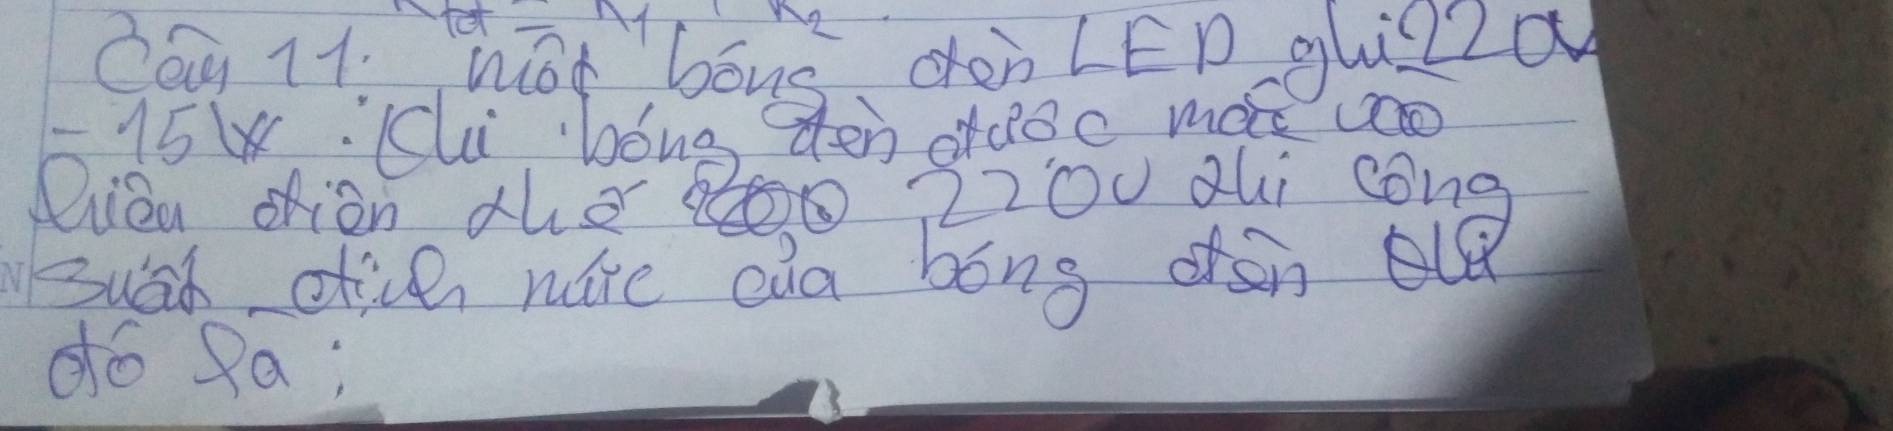 Câu 11: một bóng đèn LED ghi 220V
- 15W. Khi bóng đèn được mắc vào
hiệu điện thế 220V thì công
suất định mức của bóng đèn
đó là: